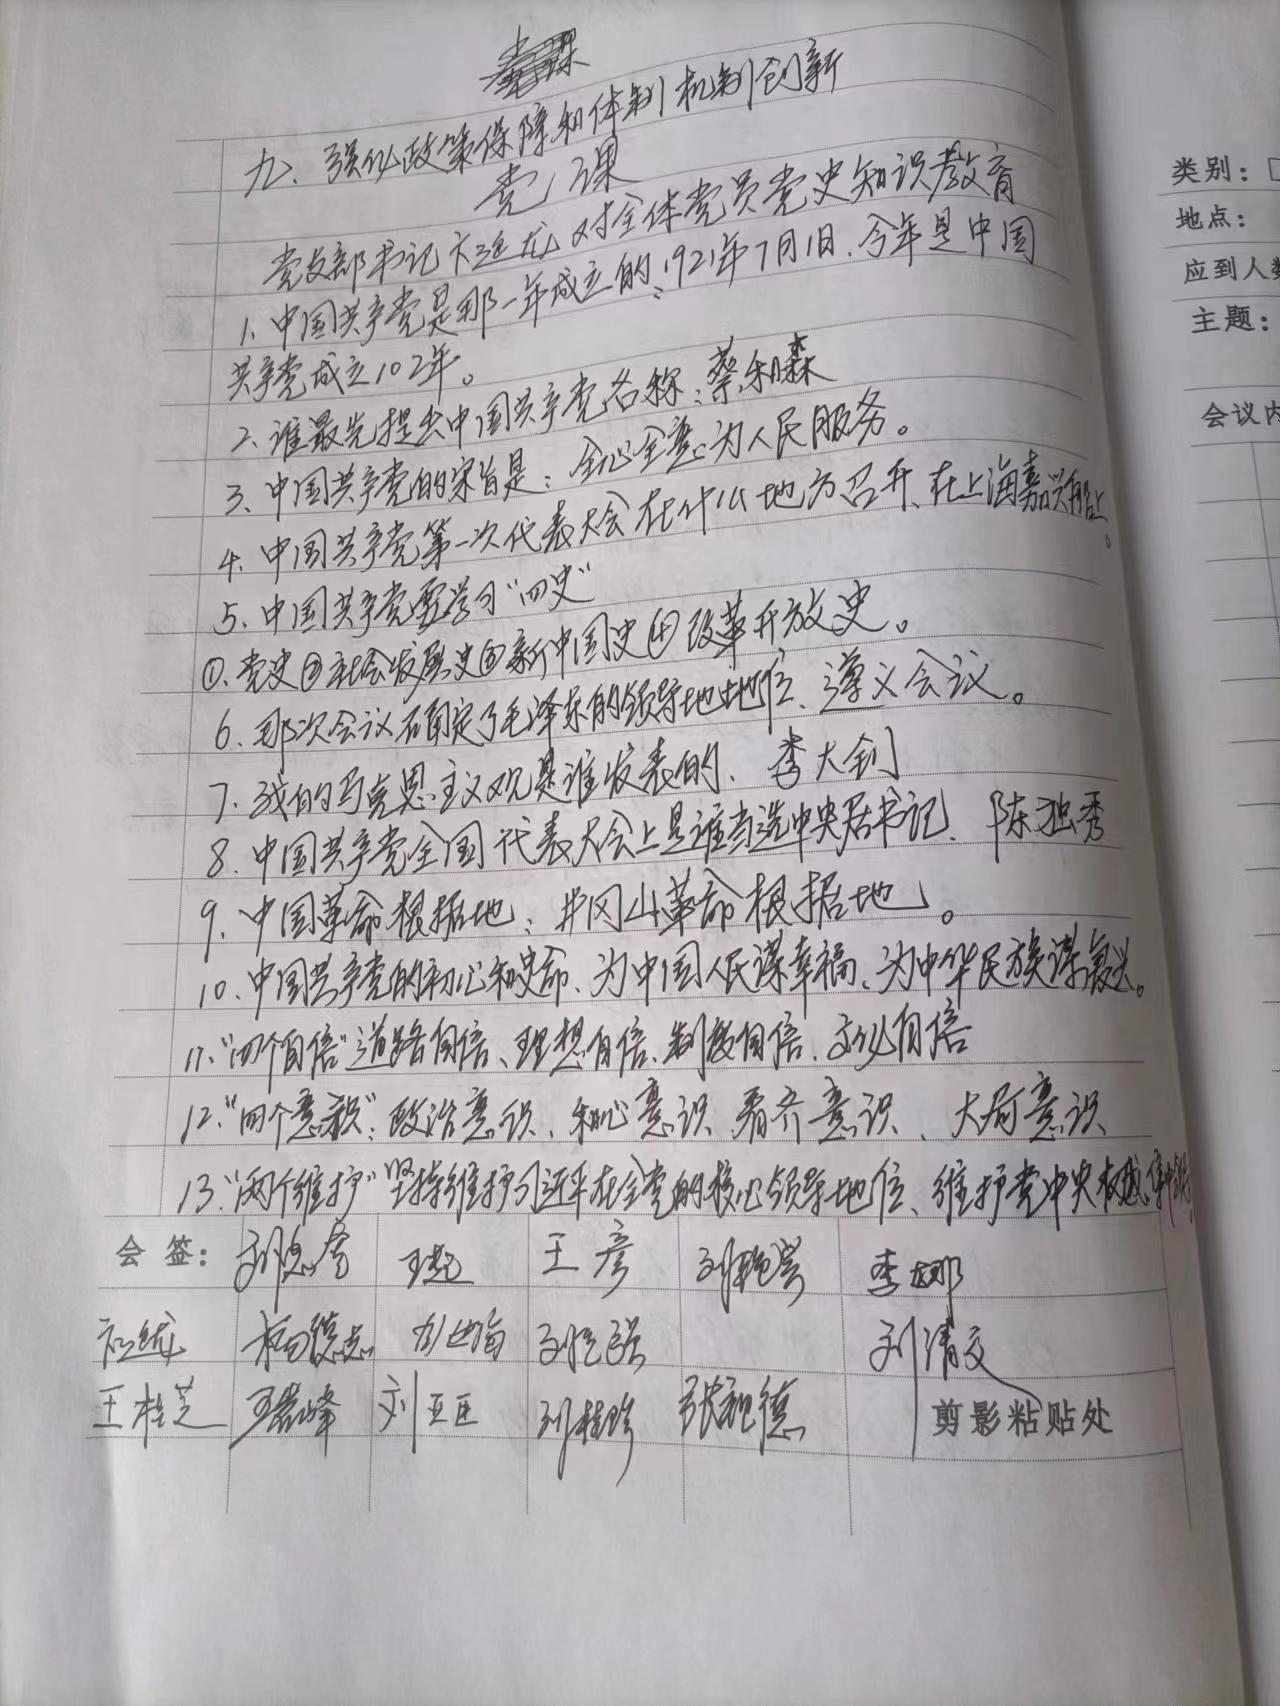 九、强化政策保障和体制机制创新
党课
党支部书记卞延龙对全体党员党史知识教育
1、中国共产党是那一年成立的:1921年7月1日、今年是中国
共产党成立102年。
2、谁最先提出中国共产党名称:蔡和森
3、中国共产党的宗旨是:全心全意为人民服务。
4、中国共产党第一次代表大会在什么地方召开、在上海嘉兴船上。
5、中国共产党要学习“四史”
①、党史②社会发展史③新中国史④改革开放史。
6、那次会议石确定了毛泽东的领导地地位、遵义会议。
7、我的马克思主义观是谁发表的、李大钊
8、中国共产党全国代表大会上是谁当选中央局书记、陈独秀
9、中国革命根据地:井冈山革命根据地。
10、中国共产党的初心和史命、为中国人民谋幸福、为中华民族谋复兴。
11、“四个自信”道路自信、理想自信、制度自信、文化自信
12、“四个意识”:政治意识、和心意识、看齐意识、大局意识
13、“两个维护”坚持维护习近平在全党的核心领导地位、维护党中央权威、集中领导
会签: 王彦 李娜
杨德志 刘清文
王桂芝 刘亚臣 刘桂珍 张现德
剪影粘贴处
类别:
地点:
应到人数
主题:
会议内